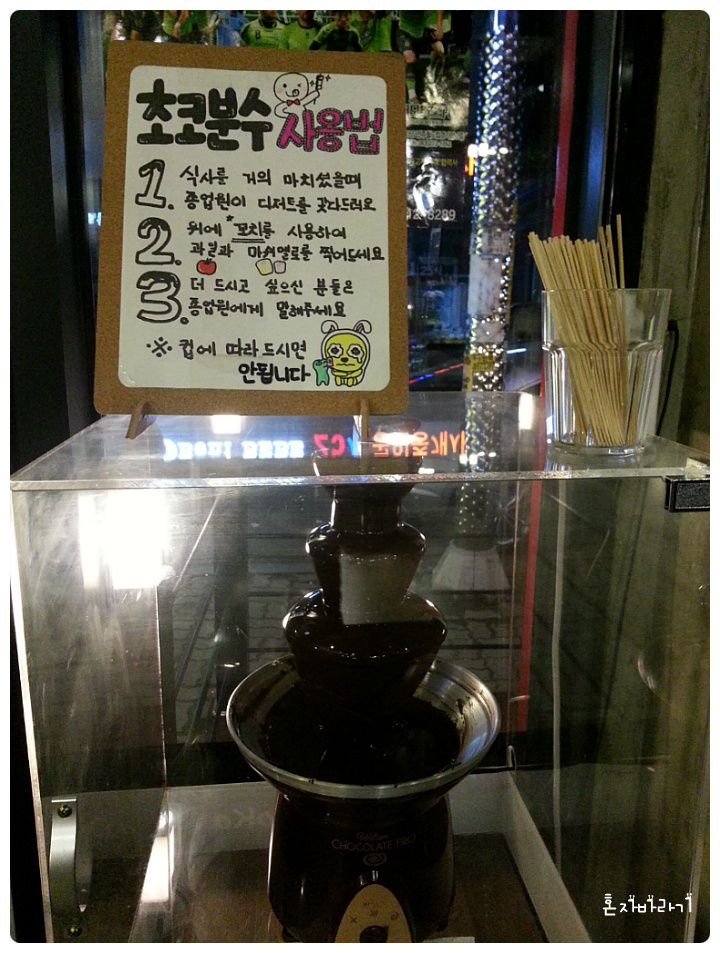 초코분수 사용법
1. 식사를 거의 마치셨을때
종업원이 디저트를 갖다드려요
2. 위에 *꼬치를 사용하여
과일과 마쉬멜로를 찍어드세요
3. 더 드시고 싶으신 분들은
종업원에게 말해주세요
※ 컵에 따라 드시면
안됩니다
8289
CHOCOLATE PRO
혼자바라기